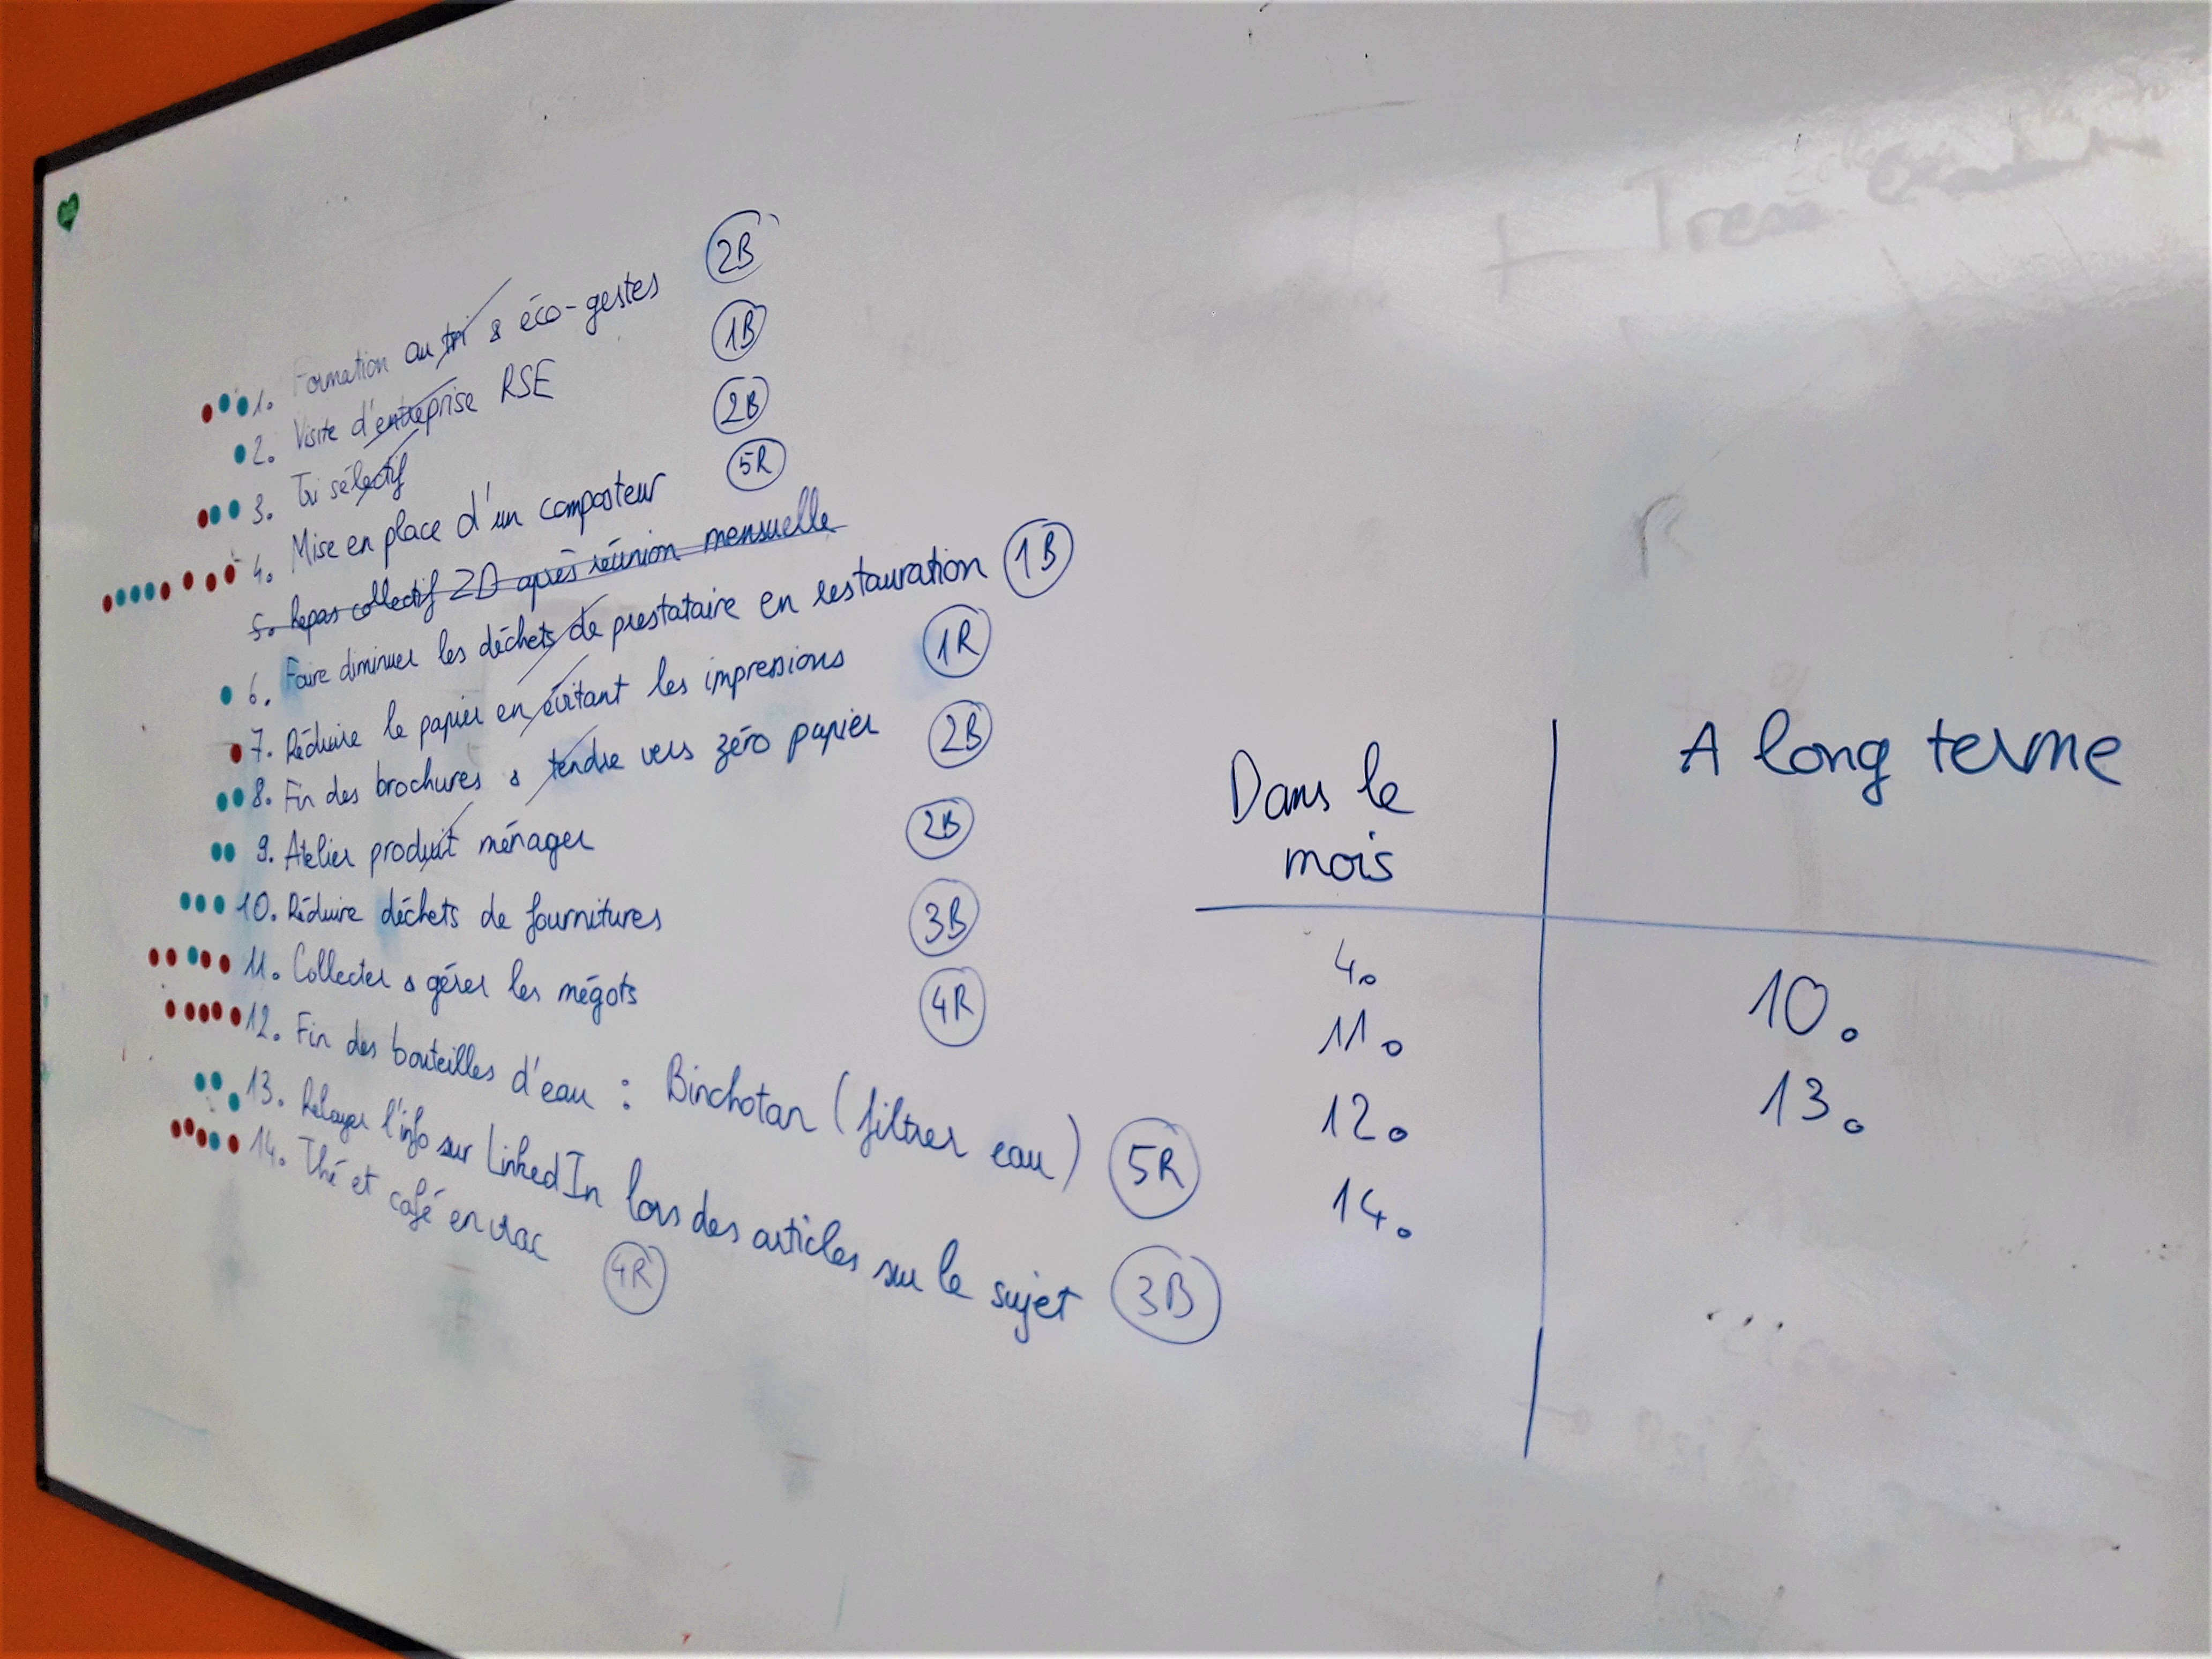 1. Formation au tri & éco-gestes 2B
2. Visite d'entreprise RSE 1B
3. Tri sélectif 2B
4. Mise en place d'un composteur 5R
5. Repas collectif ZD après réunion mensuelle
6. Faire diminuer les déchets de prestataire en restauration 1B
7. Réduire le papier en évitant les impressions 1R
8. Fin des brochures & tendre vers zéro papier 2B
9. Atelier produit ménager 2B
10. Réduire déchets de fournitures 3B
11. Collecter & gérer les mégots 4R
12. Fin des bouteilles d'eau : Binchotan (filtrer eau) 5R
13. Relayer l'info sur LinkedIn lors des articles sur le sujet 3B
14. Thé et café en vrac 4R
Dans le
mois
4.
11.
12.
14.
A long terme
10.
13.